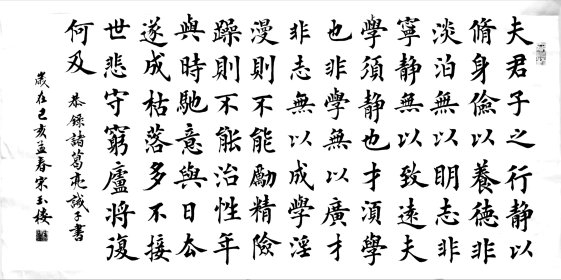 夫君子之行静以
脩身儉以養德非
淡泊無以明志非
寧静無以致遠夫
學須静也才須學
也非學無以廣才
非志無以成學淫
漫則不能勵精險
躁則不能治性年
與時馳意與日去
遂成枯落多不接
世悲守窮廬將復
何及
恭録諸葛亮誡子書
歲在己亥孟春宋玉